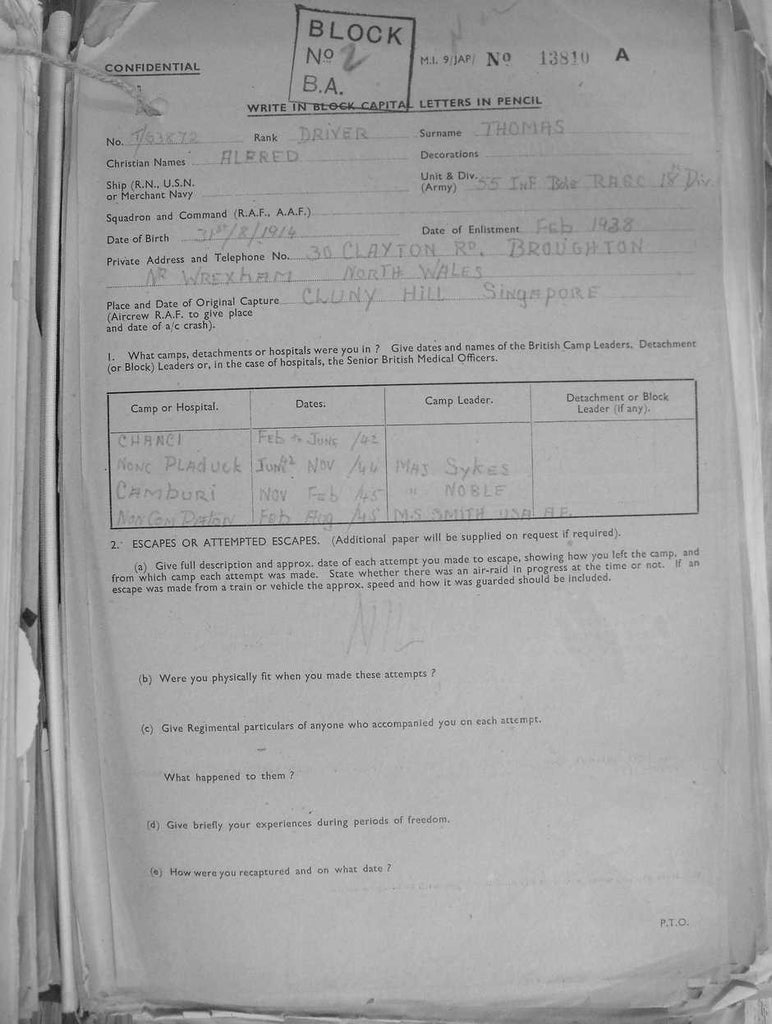 BLOCK
No 2
B.A.
CONFIDENTIAL
M.I. 9/JAP/ No 13810 A
WRITE IN BLOCK CAPITAL LETTERS IN PENCIL
No. T/63872 Rank DRIVER Surname THOMAS
Christian Names ALFRED Decorations
Ship (R.N., U.S.N. or Merchant Navy
Unit & Div. (Army) 55 INF Bde RASC 18 Div.
Squadron and Command (R.A.F., A.A.F.)
Date of Birth 31st/8/1914 Date of Enlistment Feb 1938
Private Address and Telephone No. 30 CLAYTON RD. BROUGHTON
NR WREXHAM NORTH WALES
Place and Date of Original Capture CLUNY HILL SINGAPORE
(Aircrew R.A.F. to give place
and date of a/c crash).
1. What camps, detachments or hospitals were you in ? Give dates and names of the British Camp Leaders, Detachment
(or Block) Leaders or, in the case of hospitals, the Senior British Medical Officers.
Camp or Hospital. Dates. Camp Leader. Detachment or Block
Leader (if any).
CHANGI FEB to JUNE /42
NONC PLADUCK JUNE 42 NOV /44 MAJ SYKES
CAMBURI NOV FEB /45 " NOBLE
FEB AUG /45 M.S. SMITH USA A.F.
2. ESCAPES OR ATTEMPTED ESCAPES. (Additional paper will be supplied on request if required).
(a) Give full description and approx. date of each attempt you made to escape, showing how you left the camp, and
from which camp each attempt was made. State whether there was an air-raid in progress at the time or not. If an
escape was made from a train or vehicle the approx. speed and how it was guarded should be included.
NIL
(b) Were you physically fit when you made these attempts ?
(c) Give Regimental particulars of anyone who accompanied you on each attempt.
What happened to them ?
(d) Give briefly your experiences during periods of freedom.
(e) How were you recaptured and on what date ?
P.T.O.